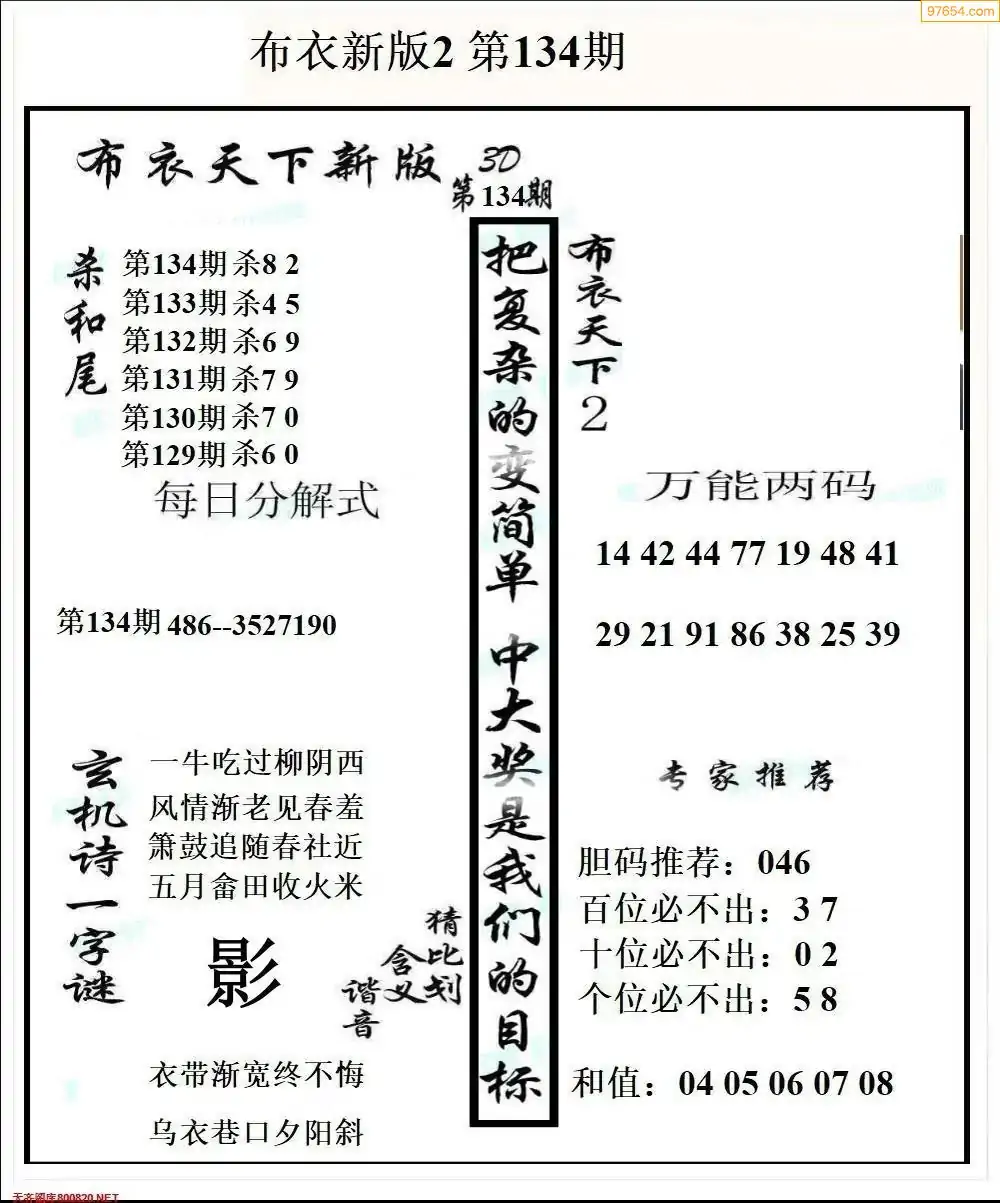 97654.com
布衣新版2 第134期
布衣天下新版 3D
第134期
杀和尾
第134期 杀8 2
第133期 杀4 5
第132期 杀6 9
第131期 杀7 9
第130期 杀7 0
第129期 杀6 0
每日分解式
第134期 486--3527190
玄机诗一字谜
一牛吃过柳阴西
风情渐老见春羞
箫鼓追随春社近
五月畲田收火米
影
猜比划
含义
谐音
衣带渐宽终不悔
乌衣巷口夕阳斜
把复杂的变简单 中大奖是我们的目标
布衣天下2
万能两码
14 42 44 77 19 48 41
29 21 91 86 38 25 39
专家推荐
胆码推荐：046
百位必不出：3 7
十位必不出：0 2
个位必不出：5 8
和值：04 05 06 07 08
天齐图库800820.NET